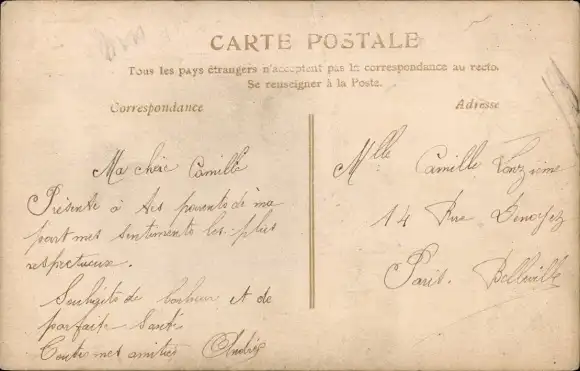 CARTE POSTALE
Tous les pays étrangers n'acceptent pas la correspondance au recto.
Se renseigner à la Poste.
Correspondance
Ma chère Camille
Présente à tes parents de ma
part mes sentiments les plus
respectueux.
Souhaits de bonheur et de
parfaite santé
Toutes mes amitiés
Adresse
Mlle Camille
14 Rue Denoyez
Paris. Belleville